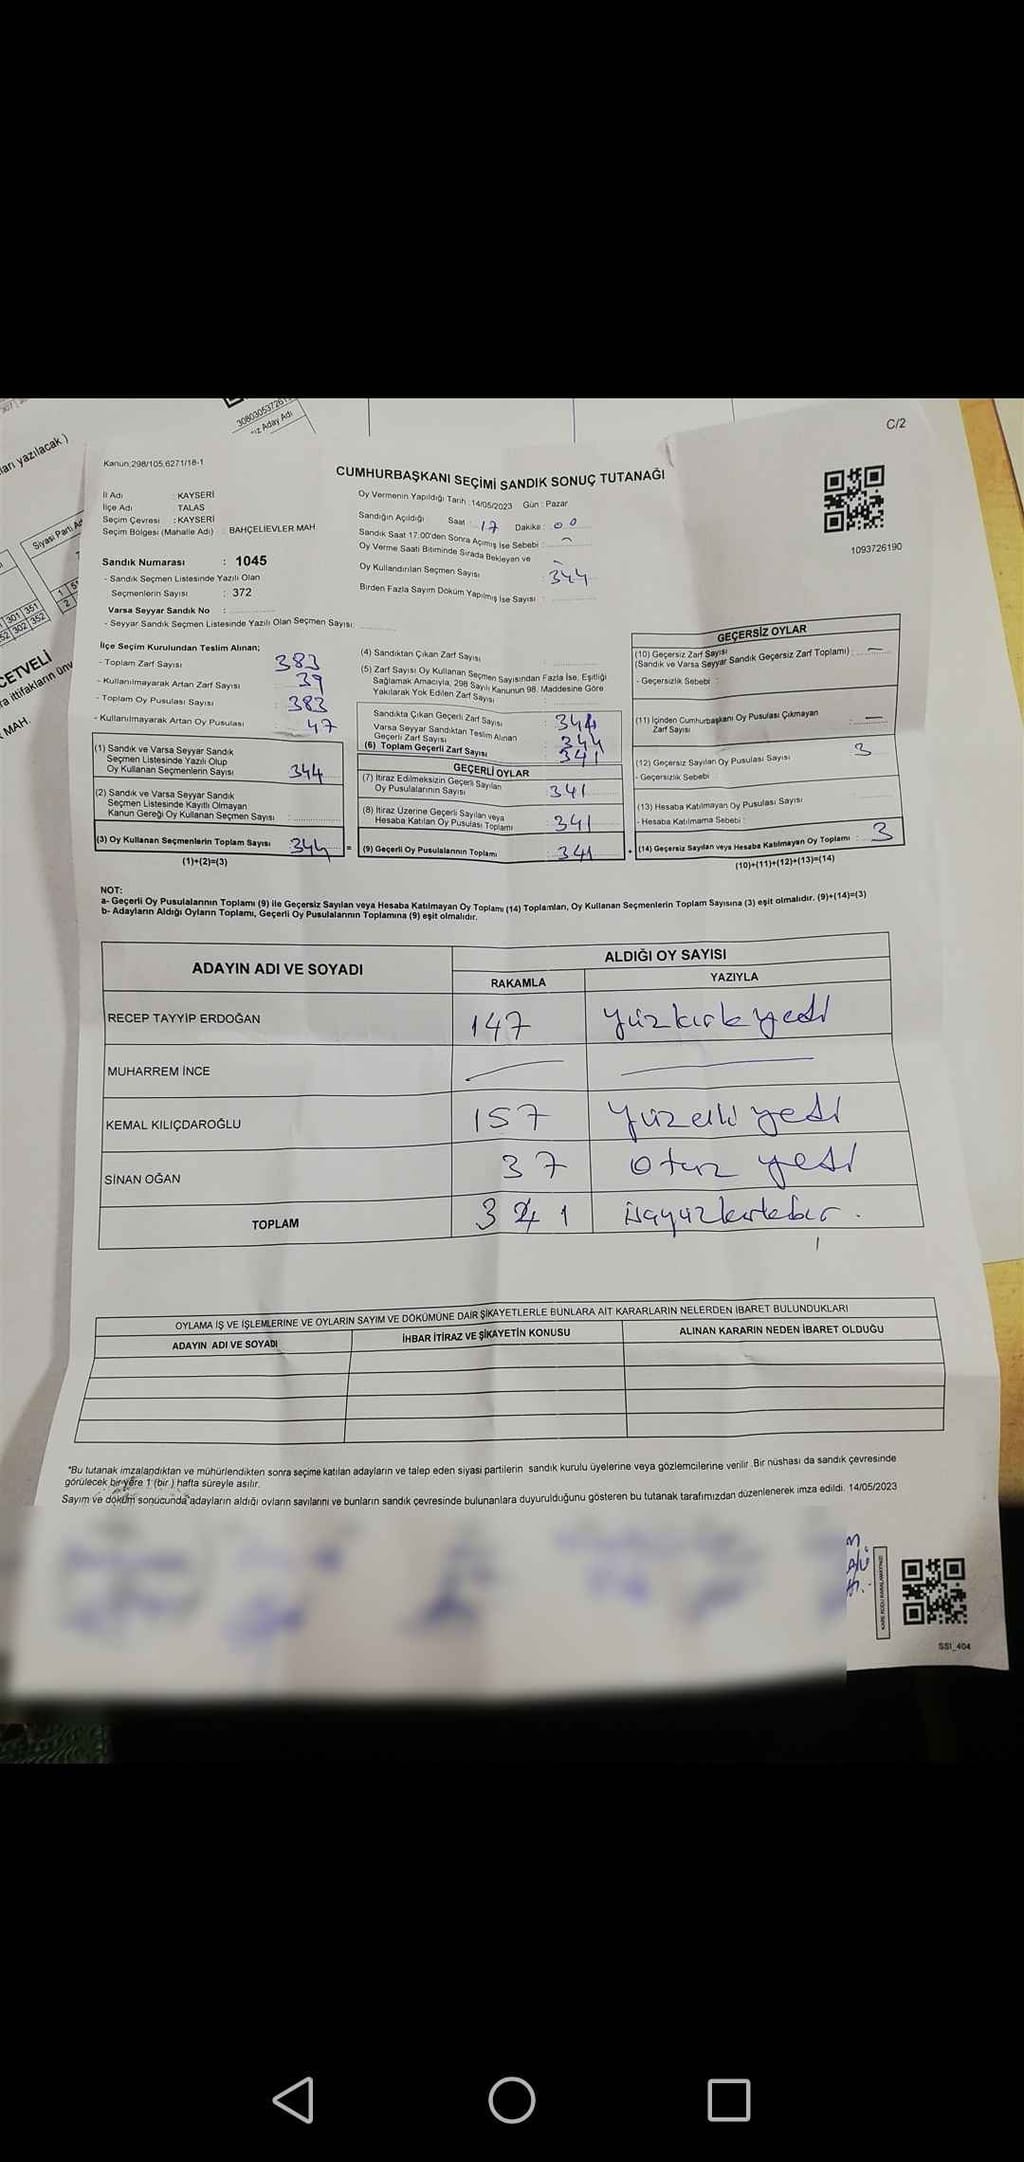 ları yazılacak.)
Siyasi Parti Ad
301 351
52 302 352
CETVELİ
ra ittifakların ünv
MAH.
30803053726
iz Aday Adı
C/2
Kanun:298/105,6271/18-1
CUMHURBAŞKANI SEÇİMİ SANDIK SONUÇ TUTANAĞI
İl Adı : KAYSERİ
İlçe Adı : TALAS
Seçim Çevresi : KAYSERİ
Seçim Bölgesi (Mahalle Adı) : BAHÇELİEVLER MAH.
Sandık Numarası : 1045
- Sandık Seçmen Listesinde Yazılı Olan
Seçmenlerin Sayısı : 372
Varsa Seyyar Sandık No :
- Seyyar Sandık Seçmen Listesinde Yazılı Olan Seçmen Sayısı:
Oy Vermenin Yapıldığı Tarih : 14/05/2023 Gün : Pazar
Sandığın Açıldığı Saat : 17 Dakika : 00
Sandık Saat 17.00'den Sonra Açımış İse Sebebi :
Oy Verme Saati Bitiminde Sırada Bekleyen ve
Oy Kullandırılan Seçmen Sayısı : 344
Birden Fazla Sayım Döküm Yapılmış İse Sayısı :
1093726190
İlçe Seçim Kurulundan Teslim Alınan;
- Toplam Zarf Sayısı 383
- Kullanılmayarak Artan Zarf Sayısı 39
- Toplam Oy Pusulası Sayısı 383
- Kullanılmayarak Artan Oy Pusulası 47
(1) Sandık ve Varsa Seyyar Sandık
Seçmen Listesinde Yazılı Olup
Oy Kullanan Seçmenlerin Sayısı 344
(2) Sandık ve Varsa Seyyar Sandık
Seçmen Listesinde Kayıtlı Olmayan
Kanun Gereği Oy Kullanan Seçmen Sayısı :
(3) Oy Kullanan Seçmenlerin Toplam Sayısı 344 =
(1)+(2)=(3)
(4) Sandıktan Çıkan Zarf Sayısı :
(5) Zarf Sayısı Oy Kullanan Seçmen Sayısından Fazla İse, Eşitliği
Sağlamak Amacıyla, 298 Sayılı Kanunun 98. Maddesine Göre
Yakılarak Yok Edilen Zarf Sayısı :
Sandıkta Çıkan Geçerli Zarf Sayısı : 344
Varsa Seyyar Sandıktan Teslim Alınan
Geçerli Zarf Sayısı : 344
(6) Toplam Geçerli Zarf Sayısı : 341
GEÇERLİ OYLAR
(7) İtiraz Edilmeksizin Geçerli Sayılan
Oy Pusulalarının Sayısı : 341
(8) İtiraz Üzerine Geçerli Sayılan veya
Hesaba Katılan Oy Pusulası Toplamı : 341
(9) Geçerli Oy Pusulalarının Toplamı : 341 +
GEÇERSİZ OYLAR
(10) Geçersiz Zarf Sayısı
(Sandık ve Varsa Seyyar Sandık Geçersiz Zarf Toplamı) : —
- Geçersizlik Sebebi :
(11) İçinden Cumhurbaşkanı Oy Pusulası Çıkmayan
Zarf Sayısı : —
(12) Geçersiz Sayılan Oy Pusulası Sayısı 3
- Geçersizlik Sebebi
(13) Hesaba Katılmayan Oy Pusulası Sayısı
- Hesaba Katılmama Sebebi :
(14) Geçersiz Sayılan veya Hesaba Katılmayan Oy Toplamı : 3
(10)+(11)+(12)+(13)=(14)
NOT:
a- Geçerli Oy Pusulalarının Toplamı (9) ile Geçersiz Sayılan veya Hesaba Katılmayan Oy Toplamı (14) Toplamları, Oy Kullanan Seçmenlerin Toplam Sayısına (3) eşit olmalıdır. (9)+(14)=(3)
b- Adayların Aldığı Oyların Toplamı, Geçerli Oy Pusulalarının Toplamına (9) eşit olmalıdır.
ADAYIN ADI VE SOYADI
ALDIĞI OY SAYISI
RAKAMLA YAZIYLA
RECEP TAYYİP ERDOĞAN 147 yüzkırkyedi
MUHARREM İNCE — —
KEMAL KILIÇDAROĞLU 157 yüzelli yedi
SİNAN OĞAN 37 otuz yedi
TOPLAM 341 üçyüzkırkbir.
OYLAMA İŞ VE İŞLEMLERİNE VE OYLARIN SAYIM VE DÖKÜMÜNE DAİR ŞİKAYETLERLE BUNLARA AİT KARARLARIN NELERDEN İBARET BULUNDUKLARI
ADAYIN ADI VE SOYADI İHBAR İTİRAZ VE ŞİKAYETİN KONUSU ALINAN KARARIN NEDEN İBARET OLDUĞU
*Bu tutanak imzalandıktan ve mühürlendikten sonra seçime katılan adayların ve talep eden siyasi partilerin sandık kurulu üyelerine veya gözlemcilerine verilir. Bir nüshası da sandık çevresinde
görülecek bir yere 1 (bir) hafta süreyle asılır.
Sayım ve döküm sonucunda adayların aldığı oyların sayılarını ve bunların sandık çevresinde bulunanlara duyurulduğunu gösteren bu tutanak tarafımızdan düzenlenerek imza edildi. 14/05/2023
SS1_404